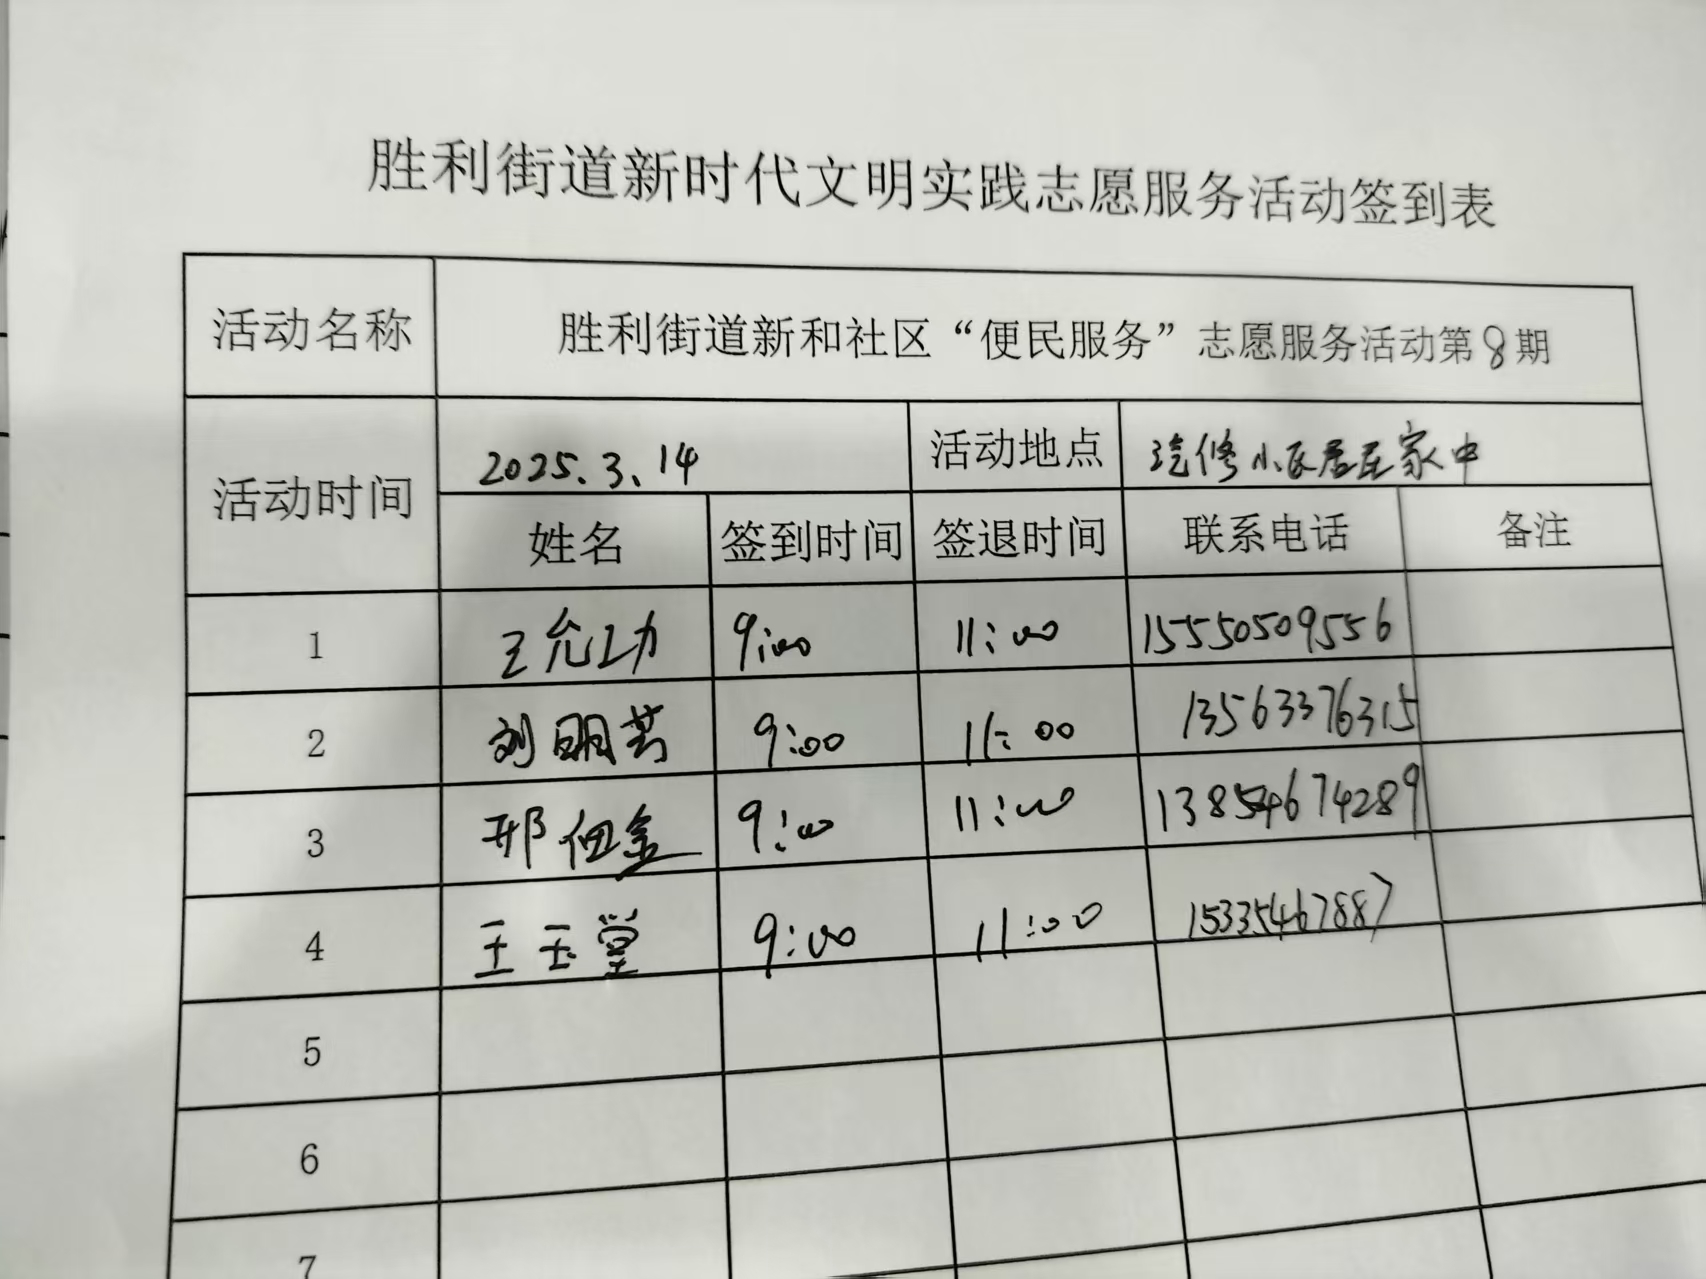 胜利街道新时代文明实践志愿服务活动签到表
活动名称 胜利街道新和社区“便民服务”志愿服务活动第8期
活动时间 2025.3.14 活动地点 汽修小区居民家中
姓名 签到时间 签退时间 联系电话 备注
1 王允功 9:00 11:00 15550509556
2 刘明芸 9:00 11:00 13563376315
3 邢佃金 9:00 11:00 13854674289
4 王玉堂 9:00 11:00 15335467887
5
6
7